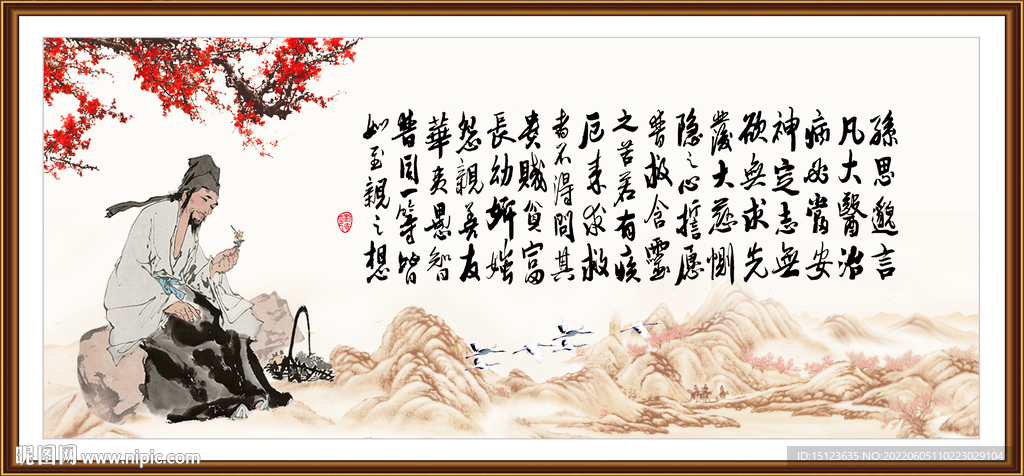 孫思邈言
凡大醫治
病必當安
神定志無
欲無求先
發大慈惻
隐之心誓愿
普救含靈
之苦若有疾
厄来求救
者不得問其
贵賤貧富
長幼妍媸
怨親善友
華夷愚智
普同一等皆
如至親之想
昵图网 www.nipic.com
ID:15123635 NO:20220605110223029104